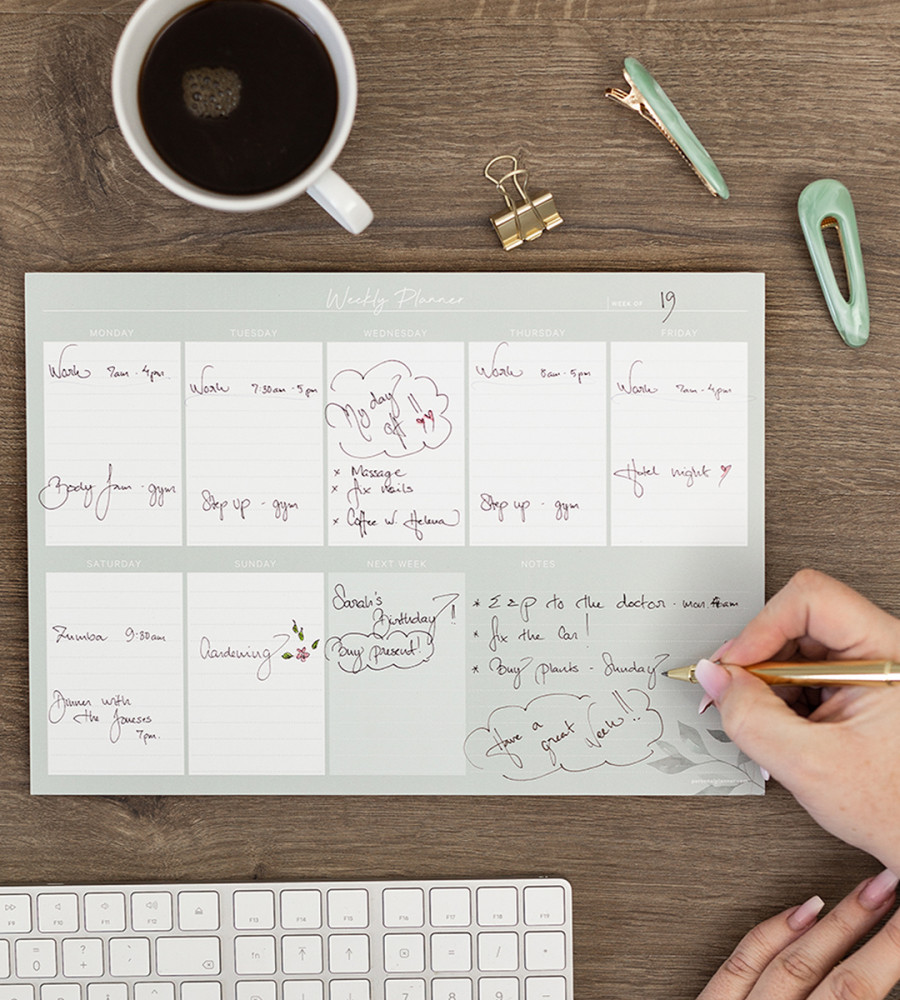 Weekly Planner
WEEK OF 19
MONDAY
Work 7am - 4pm
Body Jam - gym
TUESDAY
Work 7:30am - 5pm
Step up - gym
WEDNESDAY
My day
off !!
x Massage
x fix nails
x Coffee w. Helena
THURSDAY
Work 8am - 5pm
Step up - gym
FRIDAY
Work 7am - 4pm
Hotel night
SATURDAY
Zumba 9:30am
Dinner with
the Joneses
7pm.
SUNDAY
Gardening
NEXT WEEK
Sarah's
Birthday !!
Buy present!
NOTES
* to the doctor - mon.
* fix the car!
* Buy plants - Sunday
Have a
great week!!
F9 F10 F11 F12 F13 F14 F15 F16 F17 F18 F19
= ? ` fn = / *
0 + ´
7 8 9 -